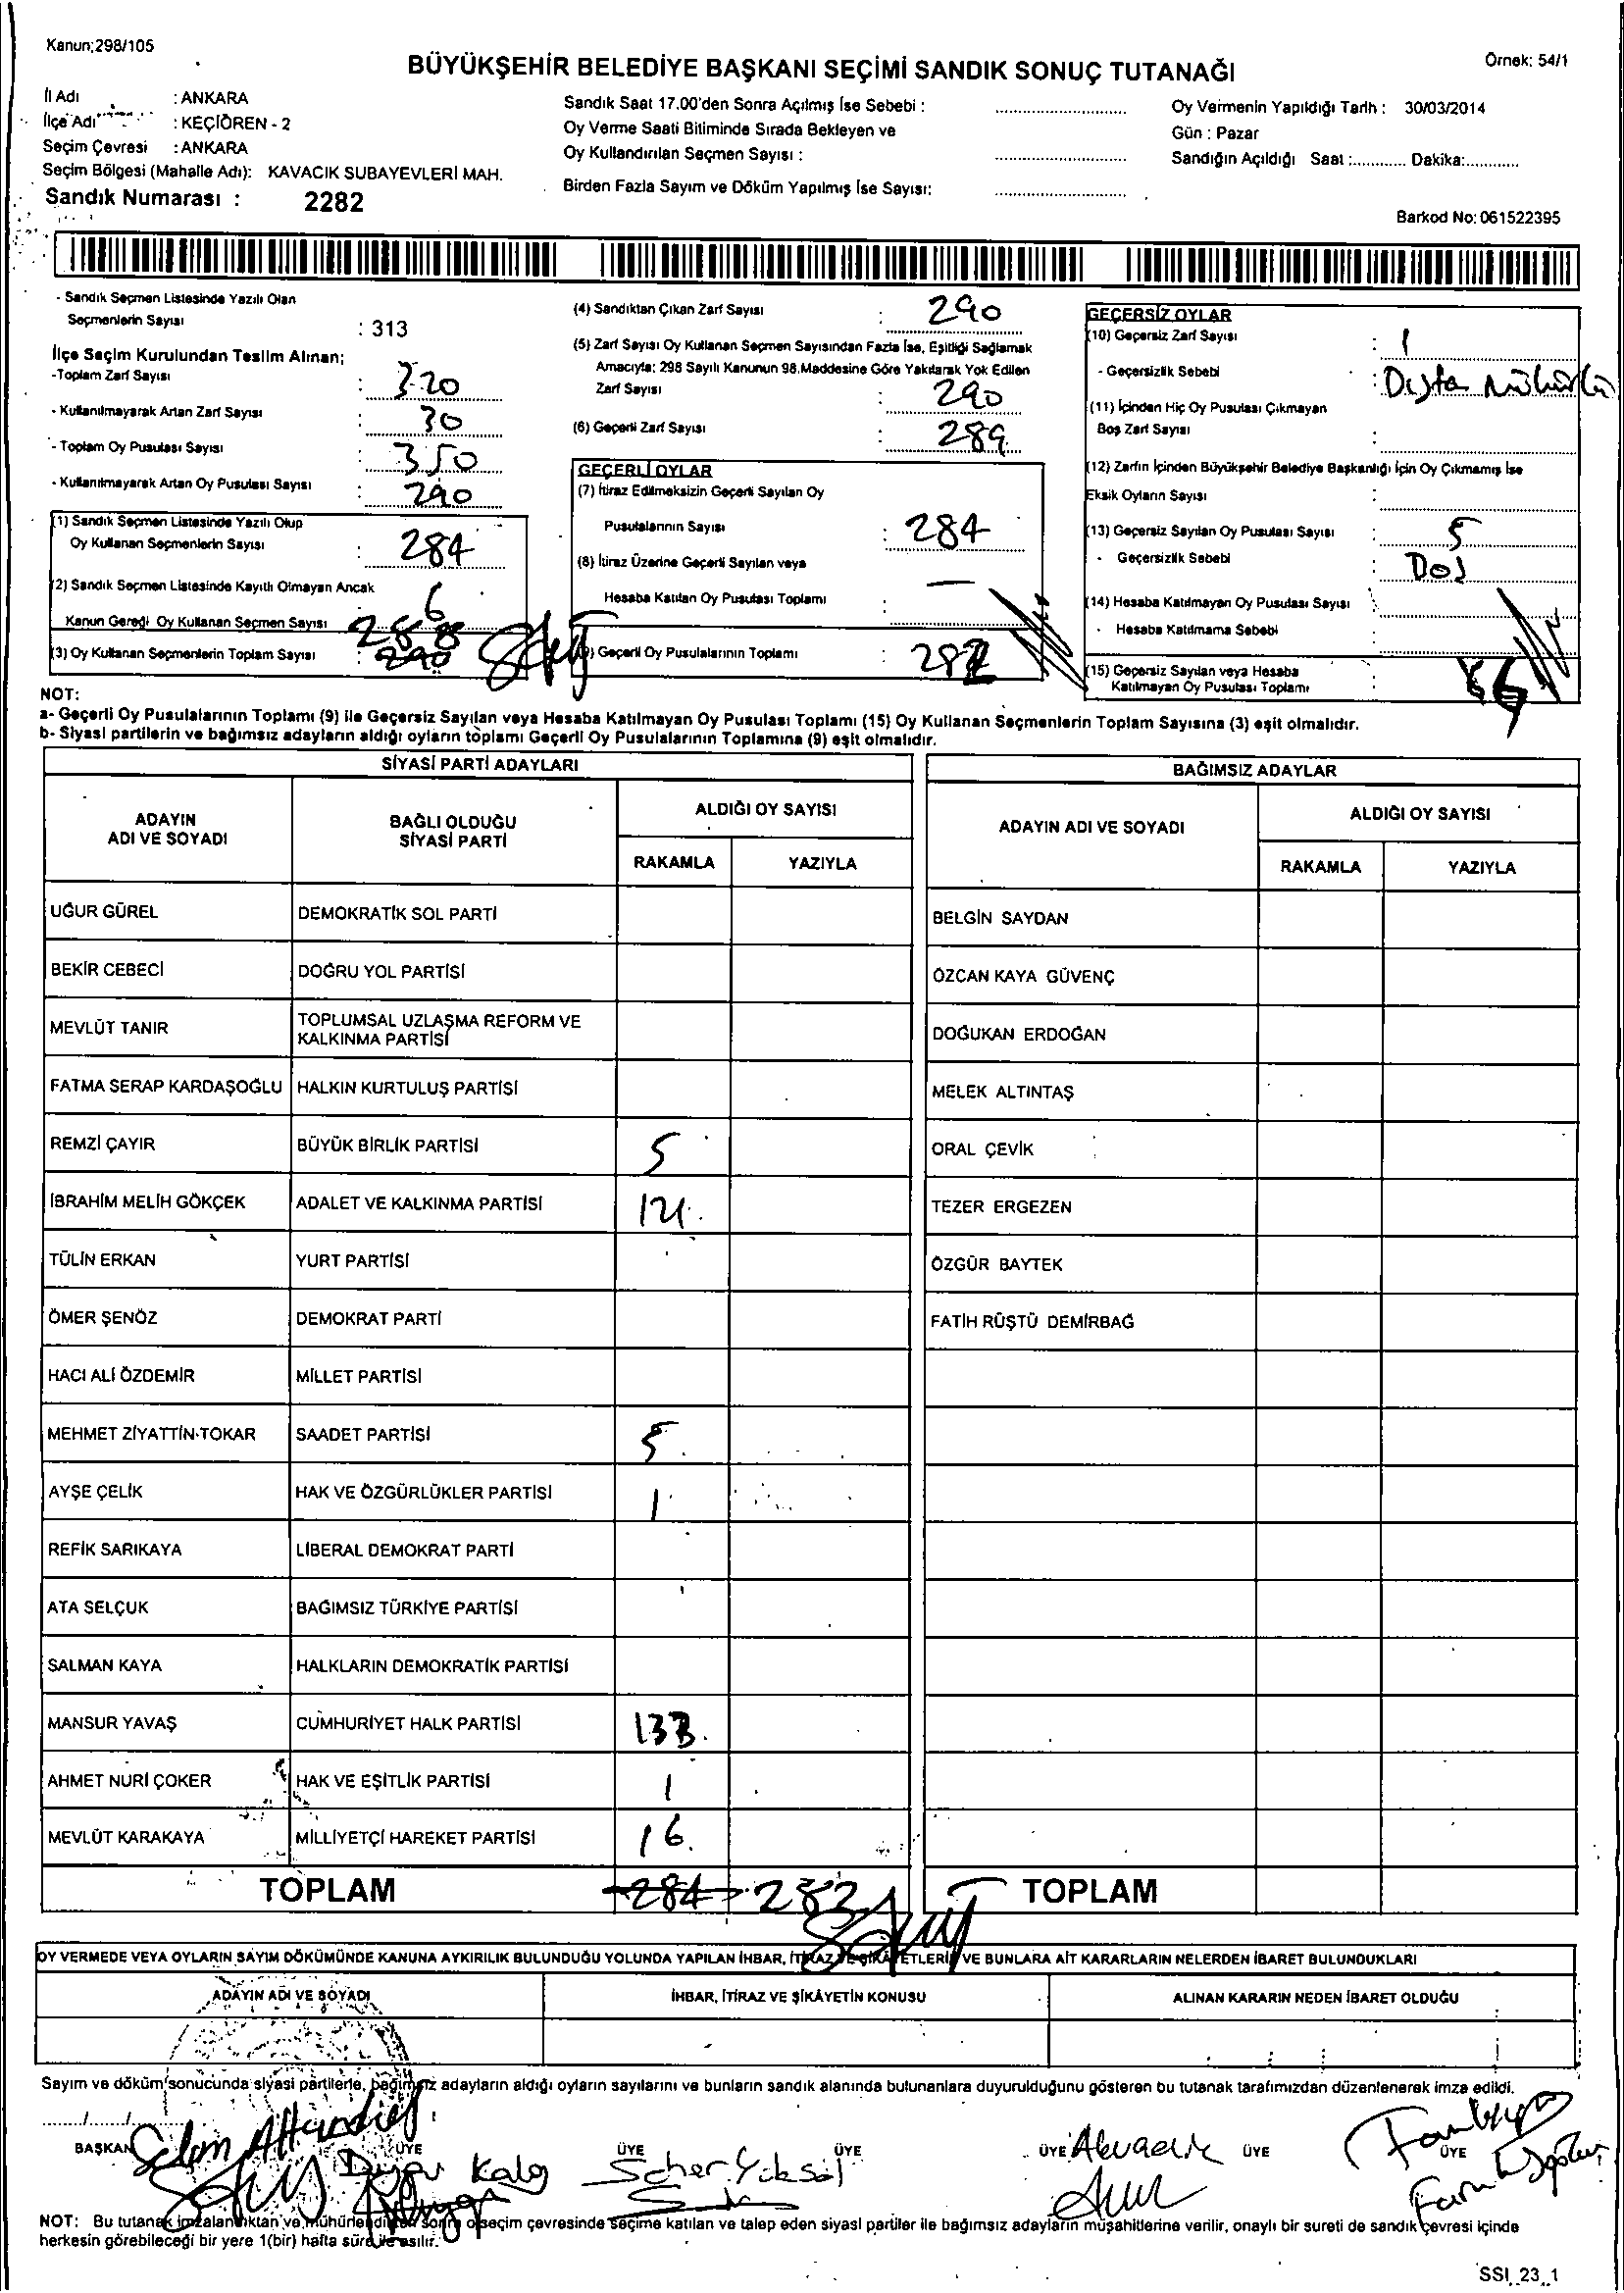 Kanun;298/105
BÜYÜKŞEHİR BELEDİYE BAŞKANI SEÇİMİ SANDIK SONUÇ TUTANAĞI
Örnek: 54/1
İl Adı : ANKARA
İlçe Adı : KEÇİÖREN - 2
Seçim Çevresi : ANKARA
Seçim Bölgesi (Mahalle Adı): KAVACIK SUBAYEVLERİ MAH.
Sandık Numarası : 2282
Sandık Saat 17.00'den Sonra Açılmış İse Sebebi :
Oy Verme Saati Bitiminde Sırada Bekleyen ve
Oy Kullandırılan Seçmen Sayısı :
Birden Fazla Sayım ve Döküm Yapılmış İse Sayısı:
Oy Vermenin Yapıldığı Tarih : 30/03/2014
Gün : Pazar
Sandığın Açıldığı Saat :............ Dakika:............
Barkod No: 061522395
- Sandık Seçmen Listesinde Yazılı Olan
Seçmenlerin Sayısı : 313
İlçe Seçim Kurulundan Teslim Alınan;
-Toplam Zarf Sayısı : 320
- Kullanılmayarak Artan Zarf Sayısı : 30
- Toplam Oy Pusulası Sayısı : 350
- Kullanılmayarak Artan Oy Pusulası Sayısı : 290
(1) Sandık Seçmen Listesinde Yazılı Olup
Oy Kullanan Seçmenlerin Sayısı : 284
(2) Sandık Seçmen Listesinde Kayıtlı Olmayan Ancak
Kanun Gereği Oy Kullanan Seçmen Sayısı 6
288
(3) Oy Kullanan Seçmenlerin Toplam Sayısı : 290
(4) Sandıktan Çıkan Zarf Sayısı : 290
(5) Zarf Sayısı Oy Kullanan Seçmen Sayısından Fazla İse, Eşitliği Sağlamak
Amacıyla; 298 Sayılı Kanunun 98.Maddesine Göre Yakılarak Yok Edilen
Zarf Sayısı : 290
(6) Geçerli Zarf Sayısı : 289
GEÇERLİ OYLAR
(7) İtiraz Edilmeksizin Geçerli Sayılan Oy
Pusulalarının Sayısı : 284
(8) İtiraz Üzerine Geçerli Sayılan veya
Hesaba Katılan Oy Pusulası Toplamı : —
(9) Geçerli Oy Pusulalarının Toplamı : 282
GEÇERSİZ OYLAR
(10) Geçersiz Zarf Sayısı : 1
- Geçersizlik Sebebi : Dışta Mühürlü
(11) İçinden Hiç Oy Pusulası Çıkmayan
Boş Zarf Sayısı :
(12) Zarfın İçinden Büyükşehir Belediye Başkanlığı İçin Oy Çıkmamış İse
Eksik Oyların Sayısı :
(13) Geçersiz Sayılan Oy Pusulası Sayısı : 5
- Geçersizlik Sebebi :
(14) Hesaba Katılmayan Oy Pusulası Sayısı :
- Hesaba Katılmama Sebebi :
(15) Geçersiz Sayılan veya Hesaba
Katılmayan Oy Pusulası Toplamı :
NOT:
a- Geçerli Oy Pusulalarının Toplamı (9) ile Geçersiz Sayılan veya Hesaba Katılmayan Oy Pusulası Toplamı (15) Oy Kullanan Seçmenlerin Toplam Sayısına (3) eşit olmalıdır.
b- Siyasi partilerin ve bağımsız adayların aldığı oyların toplamı Geçerli Oy Pusulalarının Toplamına (9) eşit olmalıdır.
SİYASİ PARTİ ADAYLARI
ADAYIN ADI VE SOYADI
BAĞLI OLDUĞU SİYASİ PARTİ
ALDIĞI OY SAYISI
RAKAMLA YAZIYLA
UĞUR GÜREL DEMOKRATİK SOL PARTİ
BEKİR CEBECİ DOĞRU YOL PARTİSİ
MEVLÜT TANIR TOPLUMSAL UZLAŞMA REFORM VE
KALKINMA PARTİSİ
FATMA SERAP KARDAŞOĞLU HALKIN KURTULUŞ PARTİSİ
REMZİ ÇAYIR BÜYÜK BİRLİK PARTİSİ 5
İBRAHİM MELİH GÖKÇEK ADALET VE KALKINMA PARTİSİ 121
TÜLİN ERKAN YURT PARTİSİ
ÖMER ŞENÖZ DEMOKRAT PARTİ
HACI ALİ ÖZDEMİR MİLLET PARTİSİ
MEHMET ZİYATTİN TOKAR SAADET PARTİSİ 5
AYŞE ÇELİK HAK VE ÖZGÜRLÜKLER PARTİSİ 1
REFİK SARIKAYA LİBERAL DEMOKRAT PARTİ
ATA SELÇUK BAĞIMSIZ TÜRKİYE PARTİSİ
SALMAN KAYA HALKLARIN DEMOKRATİK PARTİSİ
MANSUR YAVAŞ CUMHURİYET HALK PARTİSİ 133
AHMET NURİ ÇOKER HAK VE EŞİTLİK PARTİSİ 1
MEVLÜT KARAKAYA MİLLİYETÇİ HAREKET PARTİSİ 16
TOPLAM 284 282
BAĞIMSIZ ADAYLAR
ADAYIN ADI VE SOYADI
ALDIĞI OY SAYISI
RAKAMLA YAZIYLA
BELGİN SAYDAN
ÖZCAN KAYA GÜVENÇ
DOĞUKAN ERDOĞAN
MELEK ALTINTAŞ
ORAL ÇEVİK
TEZER ERGEZEN
ÖZGÜR BAYTEK
FATİH RÜŞTÜ DEMİRBAĞ
TOPLAM
OY VERMEDE VEYA OYLARIN SAYIM DÖKÜMÜNDE KANUNA AYKIRILIK BULUNDUĞU YOLUNDA YAPILAN İHBAR, İTİRAZ VE ŞİKAYETLERİ VE BUNLARA AİT KARARLARIN NELERDEN İBARET BULUNDUKLARI
ADAYIN ADI VE SOYADI
İHBAR, İTİRAZ VE ŞİKÂYETİN KONUSU
ALINAN KARARIN NEDEN İBARET OLDUĞU
Sayım ve döküm sonucunda siyasi partilerle, bağımsız adayların aldığı oyların sayılarını ve bunların sandık alanında bulunanlara duyurulduğunu gösteren bu tutanak tarafımızdan düzenlenerek imza edildi.
....../....../......
BAŞKAN ÜYE ÜYE ÜYE ÜYE ÜYE ÜYE
Seher Yüksel
NOT: Bu tutanak imzalandıktan ve mühürlendikten sonra o seçim çevresinde seçime katılan ve talep eden siyasi partiler ile bağımsız adayların müşahitlerine verilir, onaylı bir sureti de sandık çevresi içinde
herkesin görebileceği bir yere 1(bir) hafta süre ile asılır.
SSI_23_1